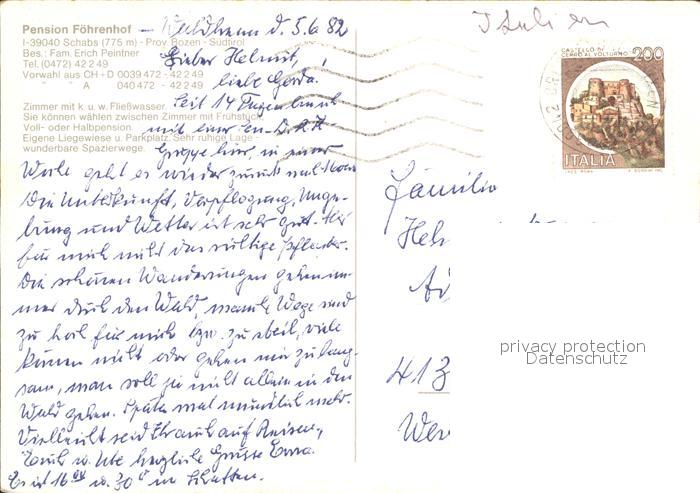 Pension Föhrenhof
I-39040 Schabs (775 m) - Prov. Bozen - Südtirol
Bes.: Fam. Erich Peintner
Tel. (0472) 42249
Vorwahl aus CH + D 0039472 - 42249
" " A 040472 - 42249
Zimmer mit k. u. w. Fließwasser.
Sie können wählen zwischen Zimmer mit Frühstück,
Voll- oder Halbpension.
Eigene Liegewiese u. Parkplatz. Sehr ruhige Lage
wunderbare Spazierwege.
Waldheim d. 5.6.82
Lieber Helmut,
liebe Gerda!
Seit 14 Tagen
mit einer
Gruppe hier, in einer
Weile geht es wieder zurück nach
Die Unterkunft, Verpflegung, Umge-
bung und Wetter ist sehr gut. Hier
für mich nicht das richtige Pflaster.
Die schönen Wanderungen gehen im-
mer durch den Wald, manche Wege sind
zu hoch für mich bzw. zu steil, viele
können nicht oder gehen mir zu lang-
sam, man soll ja nicht allein in den
Wald gehen. Später mal mündlich mehr.
Vielleicht seid Ihr auch auf Reisen,
Euch u. Ute herzliche Grüsse Erna.
Es ist 16 u. 30° im Schatten.
Italien
200
CASTELLO DI
CERRO AL VOLTURNO
ITALIA
Familie
Hel
413
Wer
privacy protection
Datenschutz